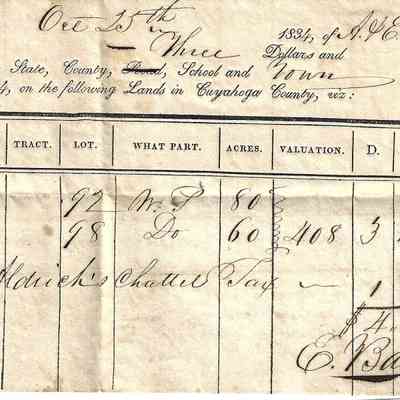 Oct 25th 1834, of A & E
Three Dollars and
State, County, Road, School and Town
4, on the following Lands in Cuyahoga County, viz:
TRACT. LOT. WHAT PART. ACRES. VALUATION. D.
92 W. P 80
98 Do 60 408 3
Aldrich's Chattel Tax — 1
$4.
E. Ba